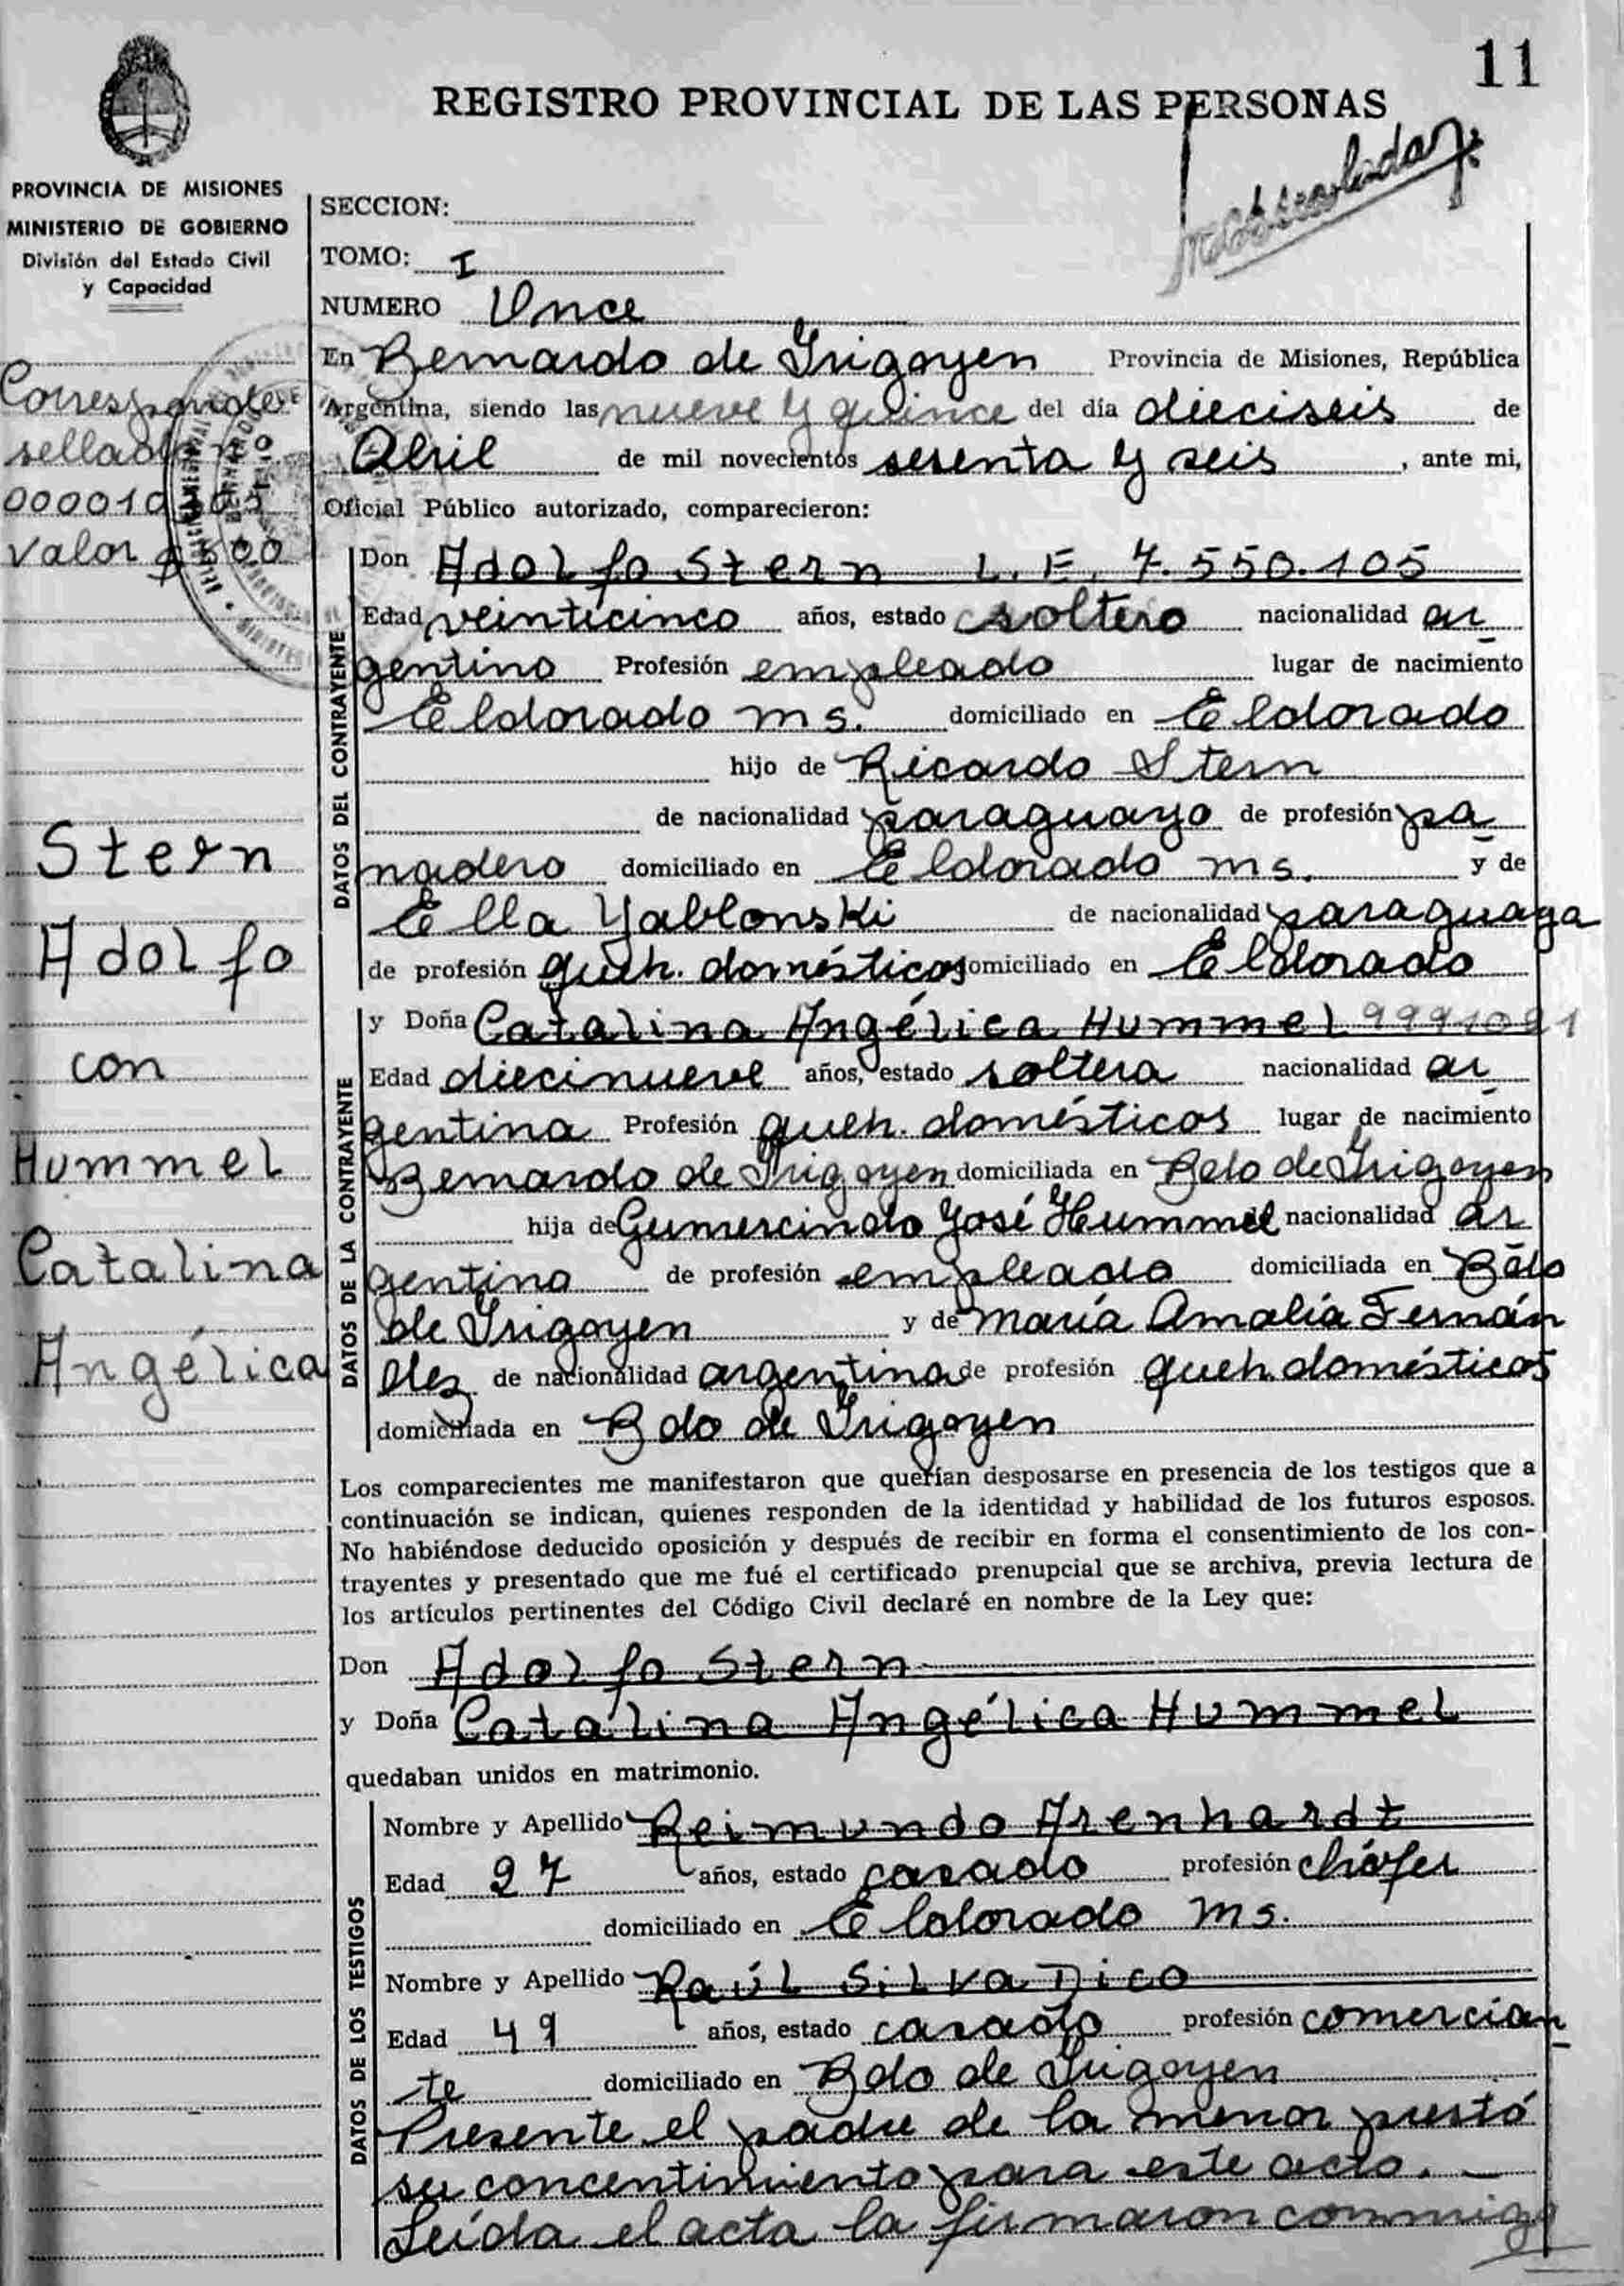 11
REGISTRO PROVINCIAL DE LAS PERSONAS
PROVINCIA DE MISIONES
MINISTERIO DE GOBIERNO
División del Estado Civil
y Capacidad
SECCION:
TOMO: I
NUMERO Once
En Bernardo de Irigoyen Provincia de Misiones, República
Argentina, siendo las nueve y quince del día dieciseis de
Abril de mil novecientos sesenta y seis, ante mi,
Oficial Público autorizado, comparecieron:
Corresponde
sellado
valor $ 500
Stern
Adolfo
con
Hummel
Catalina
Angélica
DATOS DEL CONTRAYENTE
Don Adolfo Stern L. E. 7.550.105
Edad veinticinco años, estado soltero nacionalidad ar
gentino Profesión empleado lugar de nacimiento
Eldorado ms. domiciliado en Eldorado
hijo de Ricardo Stern
de nacionalidad paraguayo de profesión pa
nadero domiciliado en Eldorado ms. y de
Ella Yablonski de nacionalidad paraguaya
de profesión queh. domésticos domiciliado en Eldorado
DATOS DE LA CONTRAYENTE
y Doña Catalina Angélica Hummel
Edad diecinueve años, estado soltera nacionalidad ar
gentina Profesión queh. domésticos lugar de nacimiento
Bernardo de Irigoyen domiciliada en Bdo de Irigoyen
hija de Gumercindo José Hummel nacionalidad ar
gentino de profesión empleado domiciliada en Bdo
de Irigoyen y de María Amalia Fernán
dez de nacionalidad argentina de profesión queh domésticos
domiciliada en Bdo de Irigoyen
Los comparecientes me manifestaron que querían desposarse en presencia de los testigos que a
continuación se indican, quienes responden de la identidad y habilidad de los futuros esposos.
No habiéndose deducido oposición y después de recibir en forma el consentimiento de los con-
trayentes y presentado que me fué el certificado prenupcial que se archiva, previa lectura de
los artículos pertinentes del Código Civil declaré en nombre de la Ley que:
Don Adolfo Stern
y Doña Catalina Angélica Hummel
quedaban unidos en matrimonio.
DATOS DE LOS TESTIGOS
Nombre y Apellido Reimundo Arenhardt
Edad 27 años, estado casado profesión chófer
domiciliado en Eldorado ms.
Nombre y Apellido Raúl Silva Dico
Edad 49 años, estado casado profesión comercian
te domiciliado en Bdo de Irigoyen
Presente el padre de la menor prestó
su concentimiento para este acto.
Leída el acta la firmaron conmigo